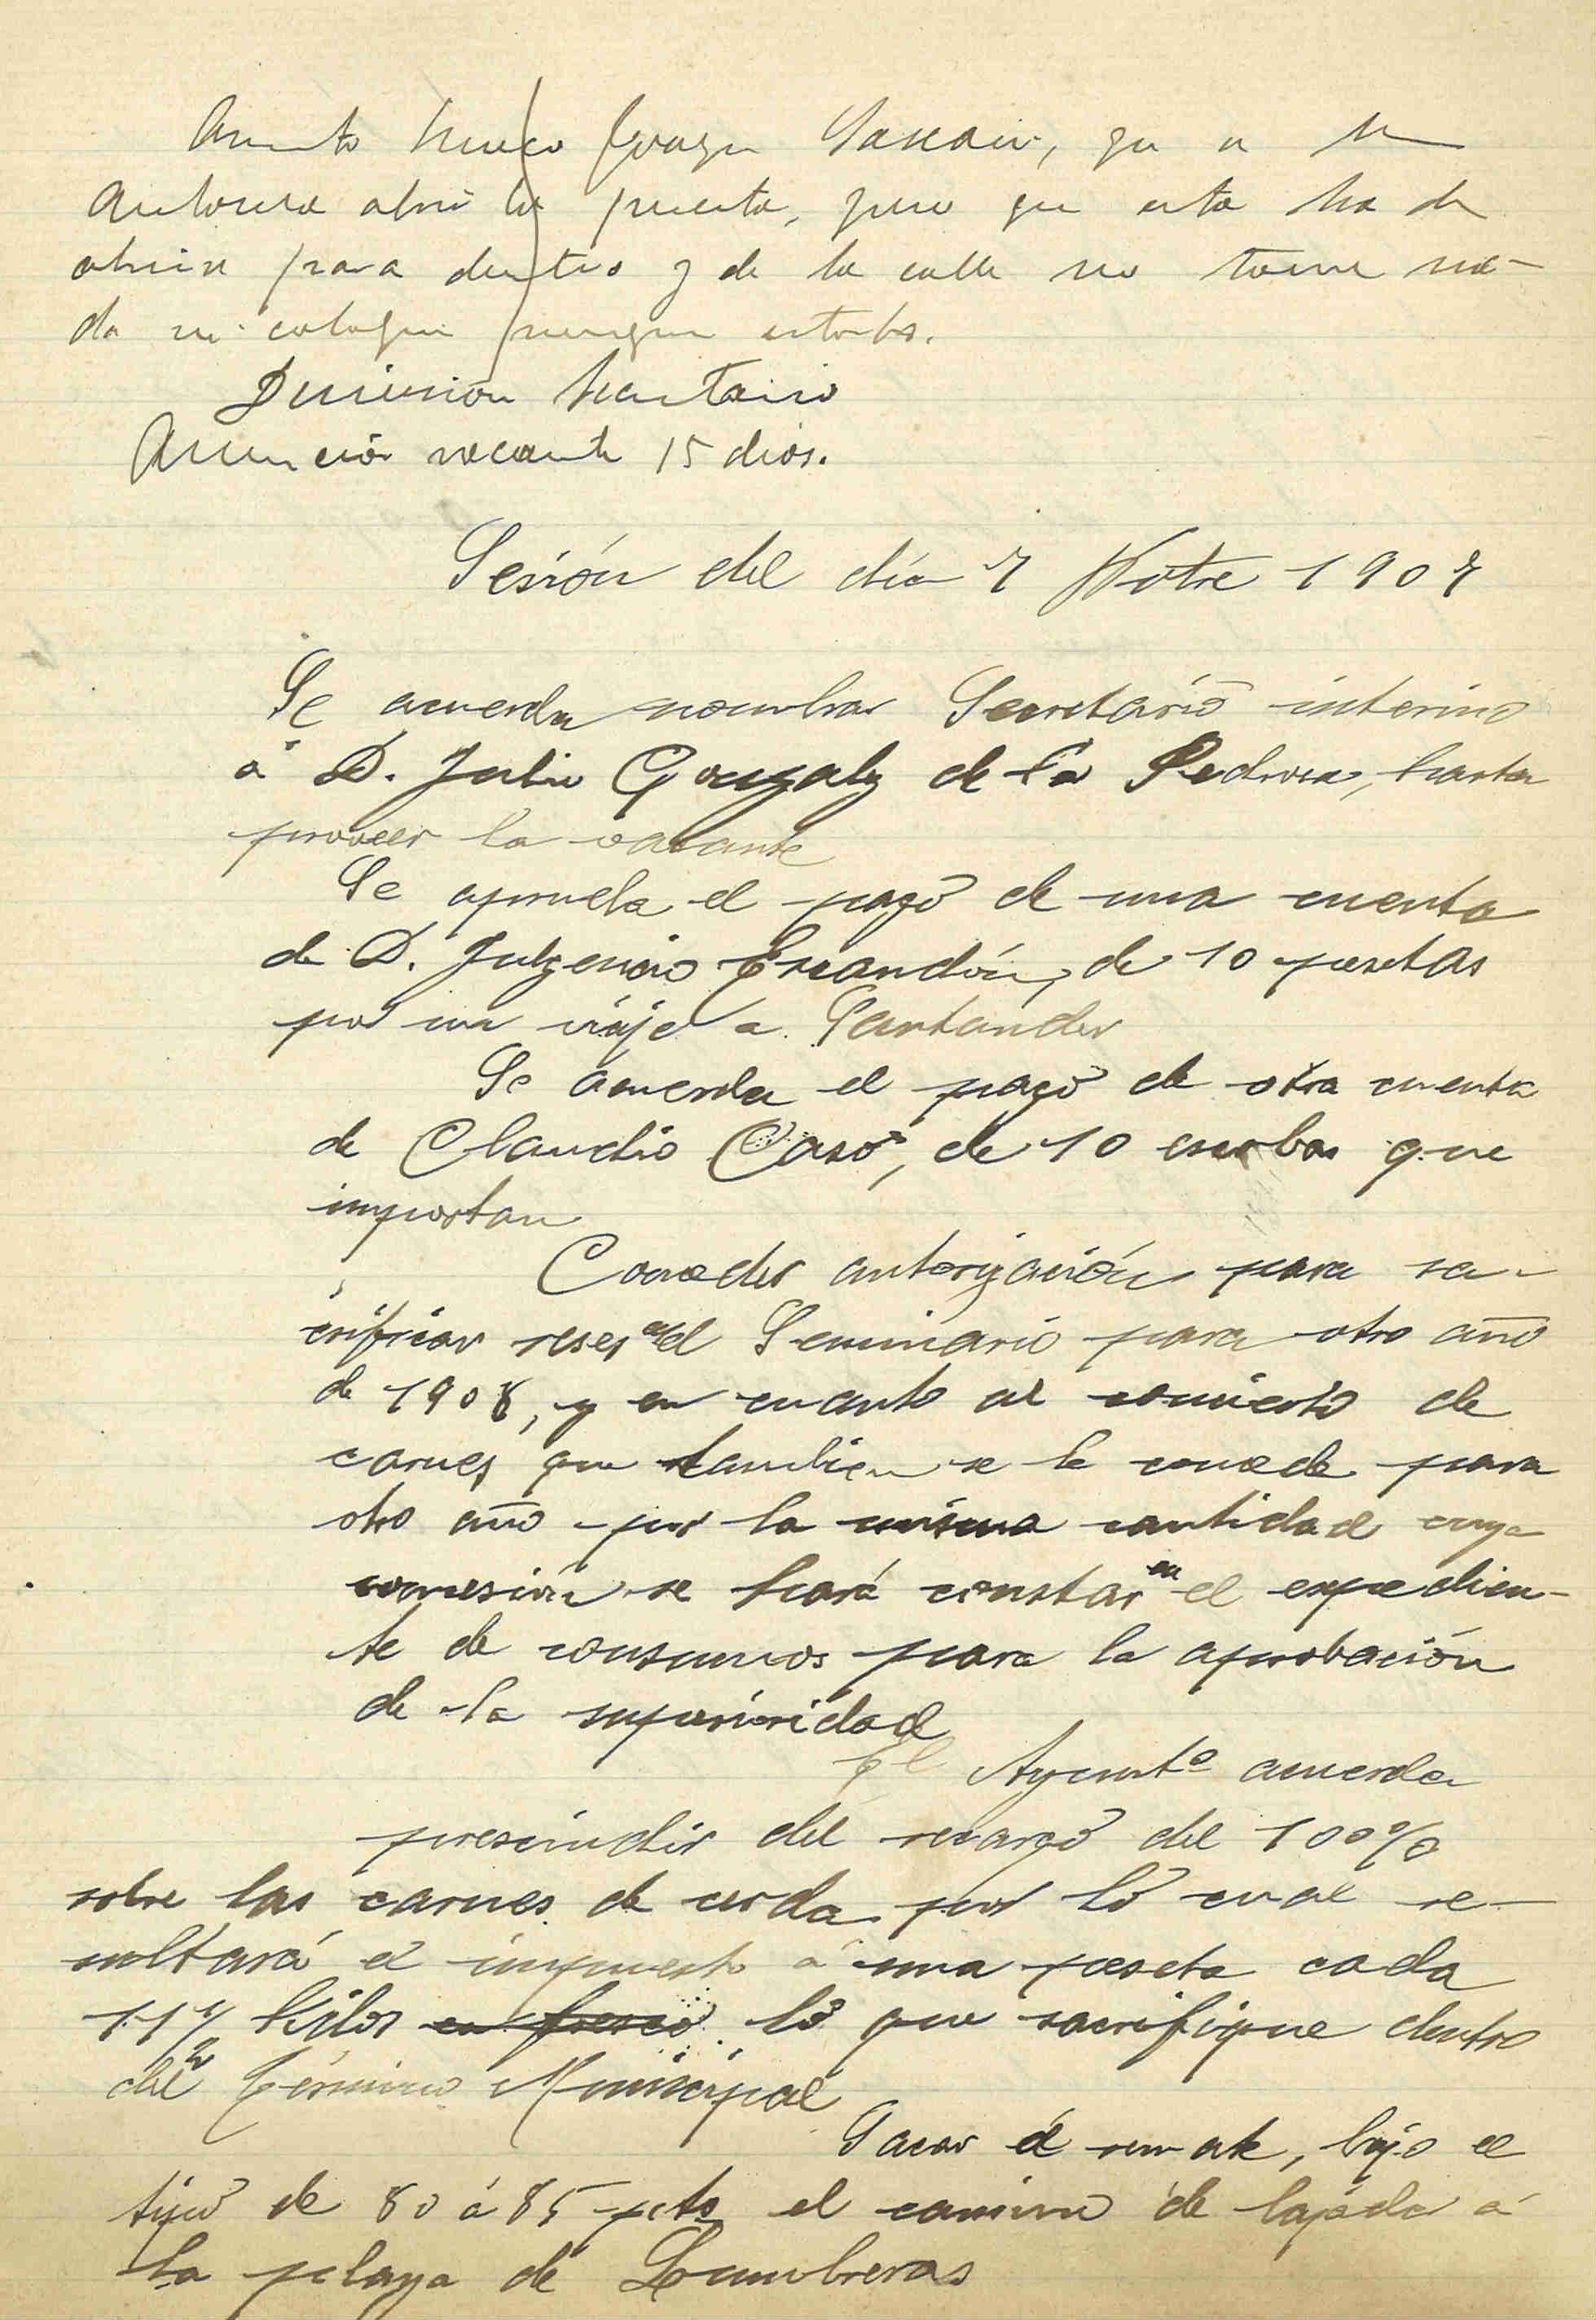 Asunto hueco Joaquin, que a se
autorice abrir la puerta, pero que esta ha de
abrirse para dentro y de la calle no tome na-
da ni coloque ningun estorbo.
Dimisión Secretario
Anunciar vacante 15 dias.
Sesión del día 7 Novbre 1907
Se acuerda nombrar Secretario interino
á D. Julio Gonzalez de la Pedrosa, hasta
proveer la vacante
Se aprueba el pago de una cuenta
de D. Fulgencio Escandón, de 10 pesetas
por un viaje a Santander
Se acuerda el pago de otra cuenta
de Claudio Caso, de 10 escobas que
importan
Conceder autorización para sa-
crificar reses en el Seminario para otro año
de 1908, y en cuanto al concierto de
carnes que tambien se le concede para
otro año por la misma cantidad cuya
concesión se hará constar en el expedien-
te de consumos para la aprobación
de la superioridad
El Ayuntº acuerda
prescindir del recargo del 100%
sobre las carnes de cerda por lo cual re-
sultará el impuesto á una peseta cada
11 ½ Kilos en fresco lo que sacrifique dentro
del Término Municipal
Sacar á remate, bajo el
tipo de 80 á 85 pts el camino de bajada á
la playa de Lumbreras